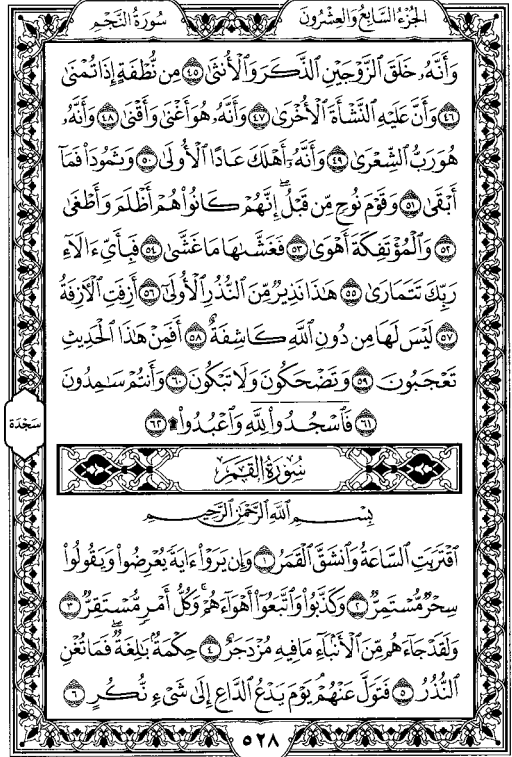 سُورَةُ النَّجْمِ
الجُزْءُ السَّابِعُ وَالعِشْرُونَ
وَأَنَّهُۥ خَلَقَ ٱلزَّوْجَيْنِ ٱلذَّكَرَ وَٱلْأُنثَىٰ ٤٥ مِن نُّطْفَةٍ إِذَا تُمْنَىٰ
٤٦ وَأَنَّ عَلَيْهِ ٱلنَّشْأَةَ ٱلْأُخْرَىٰ ٤٧ وَأَنَّهُۥ هُوَ أَغْنَىٰ وَأَقْنَىٰ ٤٨ وَأَنَّهُۥ
هُوَ رَبُّ ٱلشِّعْرَىٰ ٤٩ وَأَنَّهُۥٓ أَهْلَكَ عَادًا ٱلْأُولَىٰ ٥٠ وَثَمُودَا۟ فَمَآ
أَبْقَىٰ ٥١ وَقَوْمَ نُوحٍ مِّن قَبْلُ ۖ إِنَّهُمْ كَانُوا۟ هُمْ أَظْلَمَ وَأَطْغَىٰ
٥٢ وَٱلْمُؤْتَفِكَةَ أَهْوَىٰ ٥٣ فَغَشَّىٰهَا مَا غَشَّىٰ ٥٤ فَبِأَىِّ ءَالَآءِ
رَبِّكَ تَتَمَارَىٰ ٥٥ هَٰذَا نَذِيرٌ مِّنَ ٱلنُّذُرِ ٱلْأُولَىٰٓ ٥٦ أَزِفَتِ ٱلْءَازِفَةُ
٥٧ لَيْسَ لَهَا مِن دُونِ ٱللَّهِ كَاشِفَةٌ ٥٨ أَفَمِنْ هَٰذَا ٱلْحَدِيثِ
تَعْجَبُونَ ٥٩ وَتَضْحَكُونَ وَلَا تَبْكُونَ ٦٠ وَأَنتُمْ سَٰمِدُونَ
٦١ فَٱسْجُدُوا۟ لِلَّهِ وَٱعْبُدُوا۟ ۩ ٦٢
سَجْدَة
سُورَةُ القَمَرِ
بِسْمِ ٱللَّهِ ٱلرَّحْمَٰنِ ٱلرَّحِيمِ
ٱقْتَرَبَتِ ٱلسَّاعَةُ وَٱنشَقَّ ٱلْقَمَرُ ١ وَإِن يَرَوْا۟ ءَايَةً يُعْرِضُوا۟ وَيَقُولُوا۟
سِحْرٌ مُّسْتَمِرٌّ ٢ وَكَذَّبُوا۟ وَٱتَّبَعُوٓا۟ أَهْوَآءَهُمْ ۚ وَكُلُّ أَمْرٍ مُّسْتَقِرٌّ ٣
وَلَقَدْ جَآءَهُم مِّنَ ٱلْأَنۢبَآءِ مَا فِيهِ مُزْدَجَرٌ ٤ حِكْمَةٌۢ بَٰلِغَةٌ ۖ فَمَا تُغْنِ
ٱلنُّذُرُ ٥ فَتَوَلَّ عَنْهُمْ ۘ يَوْمَ يَدْعُ ٱلدَّاعِ إِلَىٰ شَىْءٍ نُّكُرٍ ٦
٥٢٨